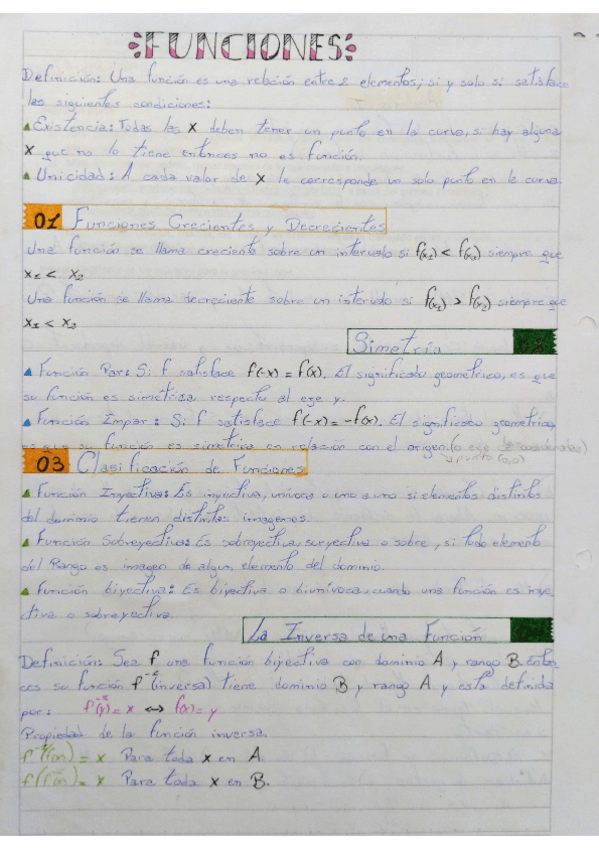 FUNCIONES
Definición: Una función es una relación entre 2 elementos; si y solo si satisface
las siguientes condiciones:
Existencia: Todas las x deben tener un punto en la curva, si hay alguna
x que no lo tiene entonces no es función.
Unicidad: A cada valor de x le corresponde un solo punto en la curva.
01 Funciones Crecientes y Decrecientes
Una función se llama creciente sobre un intervalo si f(x₁) < f(x₂) siempre que
x₁ < x₂
Una función se llama decreciente sobre un intervalo si f(x₁) > f(x₂) siempre que
x₁ < x₂
Simetría
Función Par: Si f satisface f(-x) = f(x). El significado geometrico, es que
su función es simétrica respecto al eje y.
Función Impar: Si f satisface f(-x) = -f(x). El significado geometrico,
es que su función es simetrica en relación con el origen. (o eje de coordenadas)
punto (0,0)
03 Clasificación de Funciones
Función Inyectiva: Es inyectiva, univoca o uno a uno si elementos distintos
del dominio tienen distintas imagenes.
Función Sobreyectiva: Es sobreyectiva, suryectiva o sobre, si todo elemento
del Rango es imagen de algun elemento del dominio.
Función biyectiva: Es biyectiva o biunívoca, cuando una función es inye_
ctiva o sobreyectiva.
La Inversa de una Función
Definición: Sea f una función biyectiva con dominio A y rango B. enton_
ces su función f⁻¹ (inversa) tiene dominio B y rango A y esta definida
por: f⁻¹(y) = x ↔ f(x) = y
Propiedad de la función inversa.
f⁻¹(f(x)) = x Para toda x en A.
f(f⁻¹(x)) = x Para toda x en B.